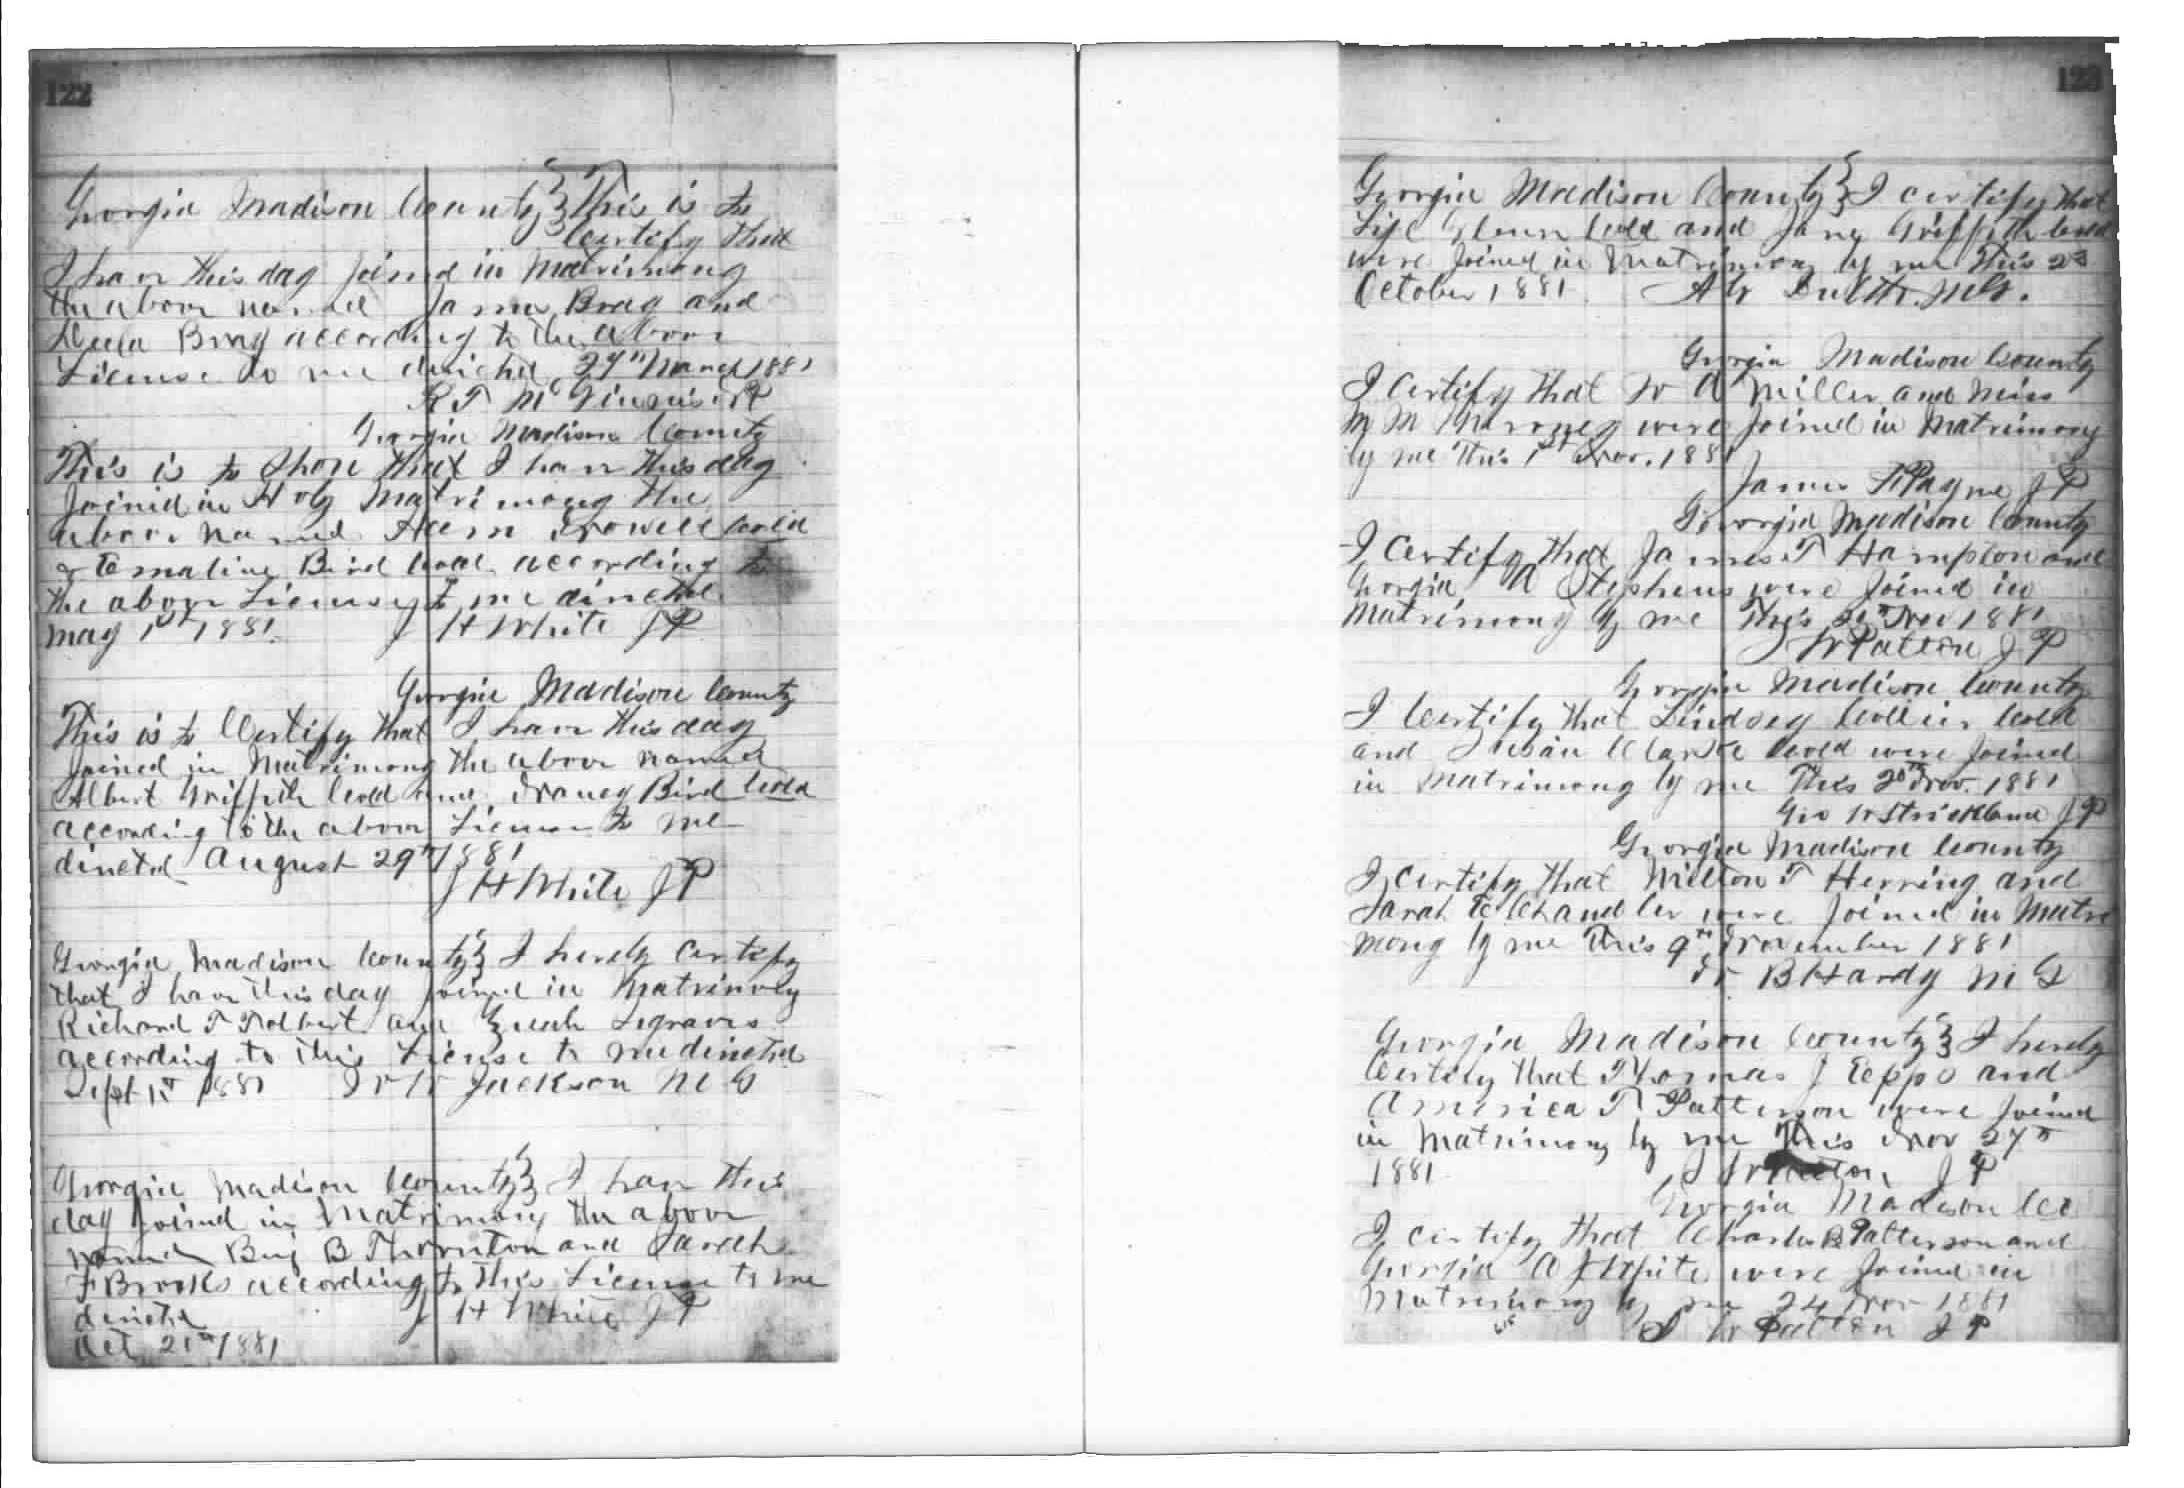 122
Georgia Madison County } This is to
Certify that
I have this day joined in Matrimony
the above named James Brag and
Brag according to the above
License to me directed 27th March 1881
R T McGinnis J P
Georgia Madison County
This is to Show that I have this day
Joined in Holy Matrimony the
above named Nowell Cold
& Emaline Bird Cold according to
the above License to me directed
May 1st 1881 J H White J P
Georgia Madison County
This is to Certify that I have this day
Joined in Matrimony the above named
Albert Griffith Cold and Nancy Bird Cold
according to the above License to me
directed August 29th 1881
J H White J P
Georgia Madison County } I hereby Certify
that I have this day joined in Matrimony
Richard T Tolbert and Segraves
according to this License to me directed
Sept 1st 1881 W Jackson M G
Georgia Madison County } I have this
day joined in Matrimony the above
named Benj B Thornton and Sarah
F Brooks according to this License to me
directed J H White J P
Oct 21st 1881
123
Georgia Madison County } I certify that
Cold and Jane Griffith Cold
were Joined in Matrimony by me This 2d
October 1881 M G.
Georgia Madison County
I Certify that W A Miller and Miss
M M were Joined in Matrimony
by me This 1st Nov. 1881
James Payne J P
Georgia Madison County
I Certify that James T Hampton and
Georgia A Stephens were Joined in
Matrimony by me This Nov 1881
W Patton J P
Georgia Madison County
I Certify that Lindsey Collier Cold
and Susan Clarke Cold were Joined
in Matrimony by me This 20th Nov. 1881
Geo W Strickland J P
Georgia Madison County
I certify that Milton T Herring and
Sarah E Chandler were Joined in Matri
mony by me This 9th November 1881
W B Hardy M G
Georgia Madison County } I hereby
Certify that Thomas J Epps and
America T Patterson were Joined
in Matrimony by me This Nov 27th
1881 S W Patton J P
Georgia Madison Co
I certify that Charles B Patterson and
Georgia A White were Joined in
Matrimony by me 24 Nov 1881
S W Patton J P